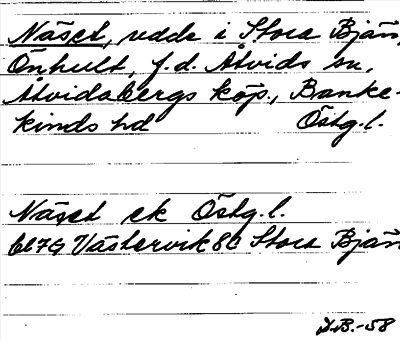 Näset, udde i Stora Bjän,
Önhult, f.d. Åtvids sn,
Åtvidabergs köp., Banke-
kinds hd Östg.l.
Näset ek Östg.l.
bl 79 Västervik 8c Stora Bjän
J.B.-58